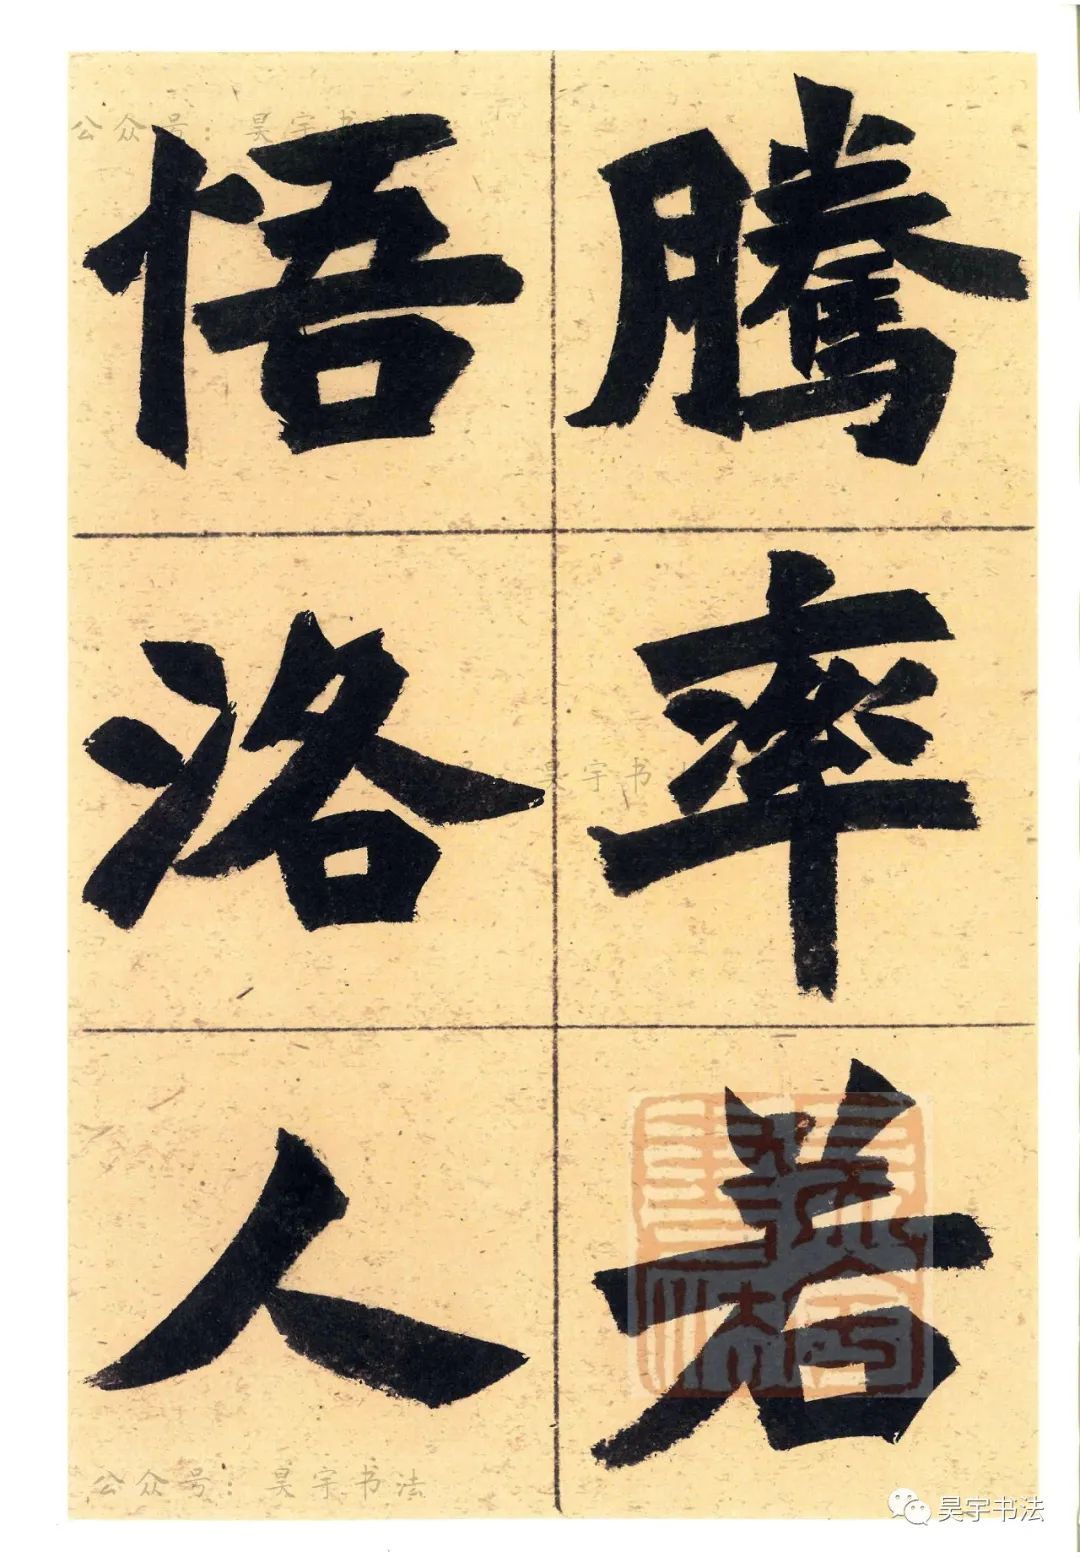 騰率若
悟洛人
公众号：昊宇书法
昊宇书法
公众号：昊宇书法
昊宇书法